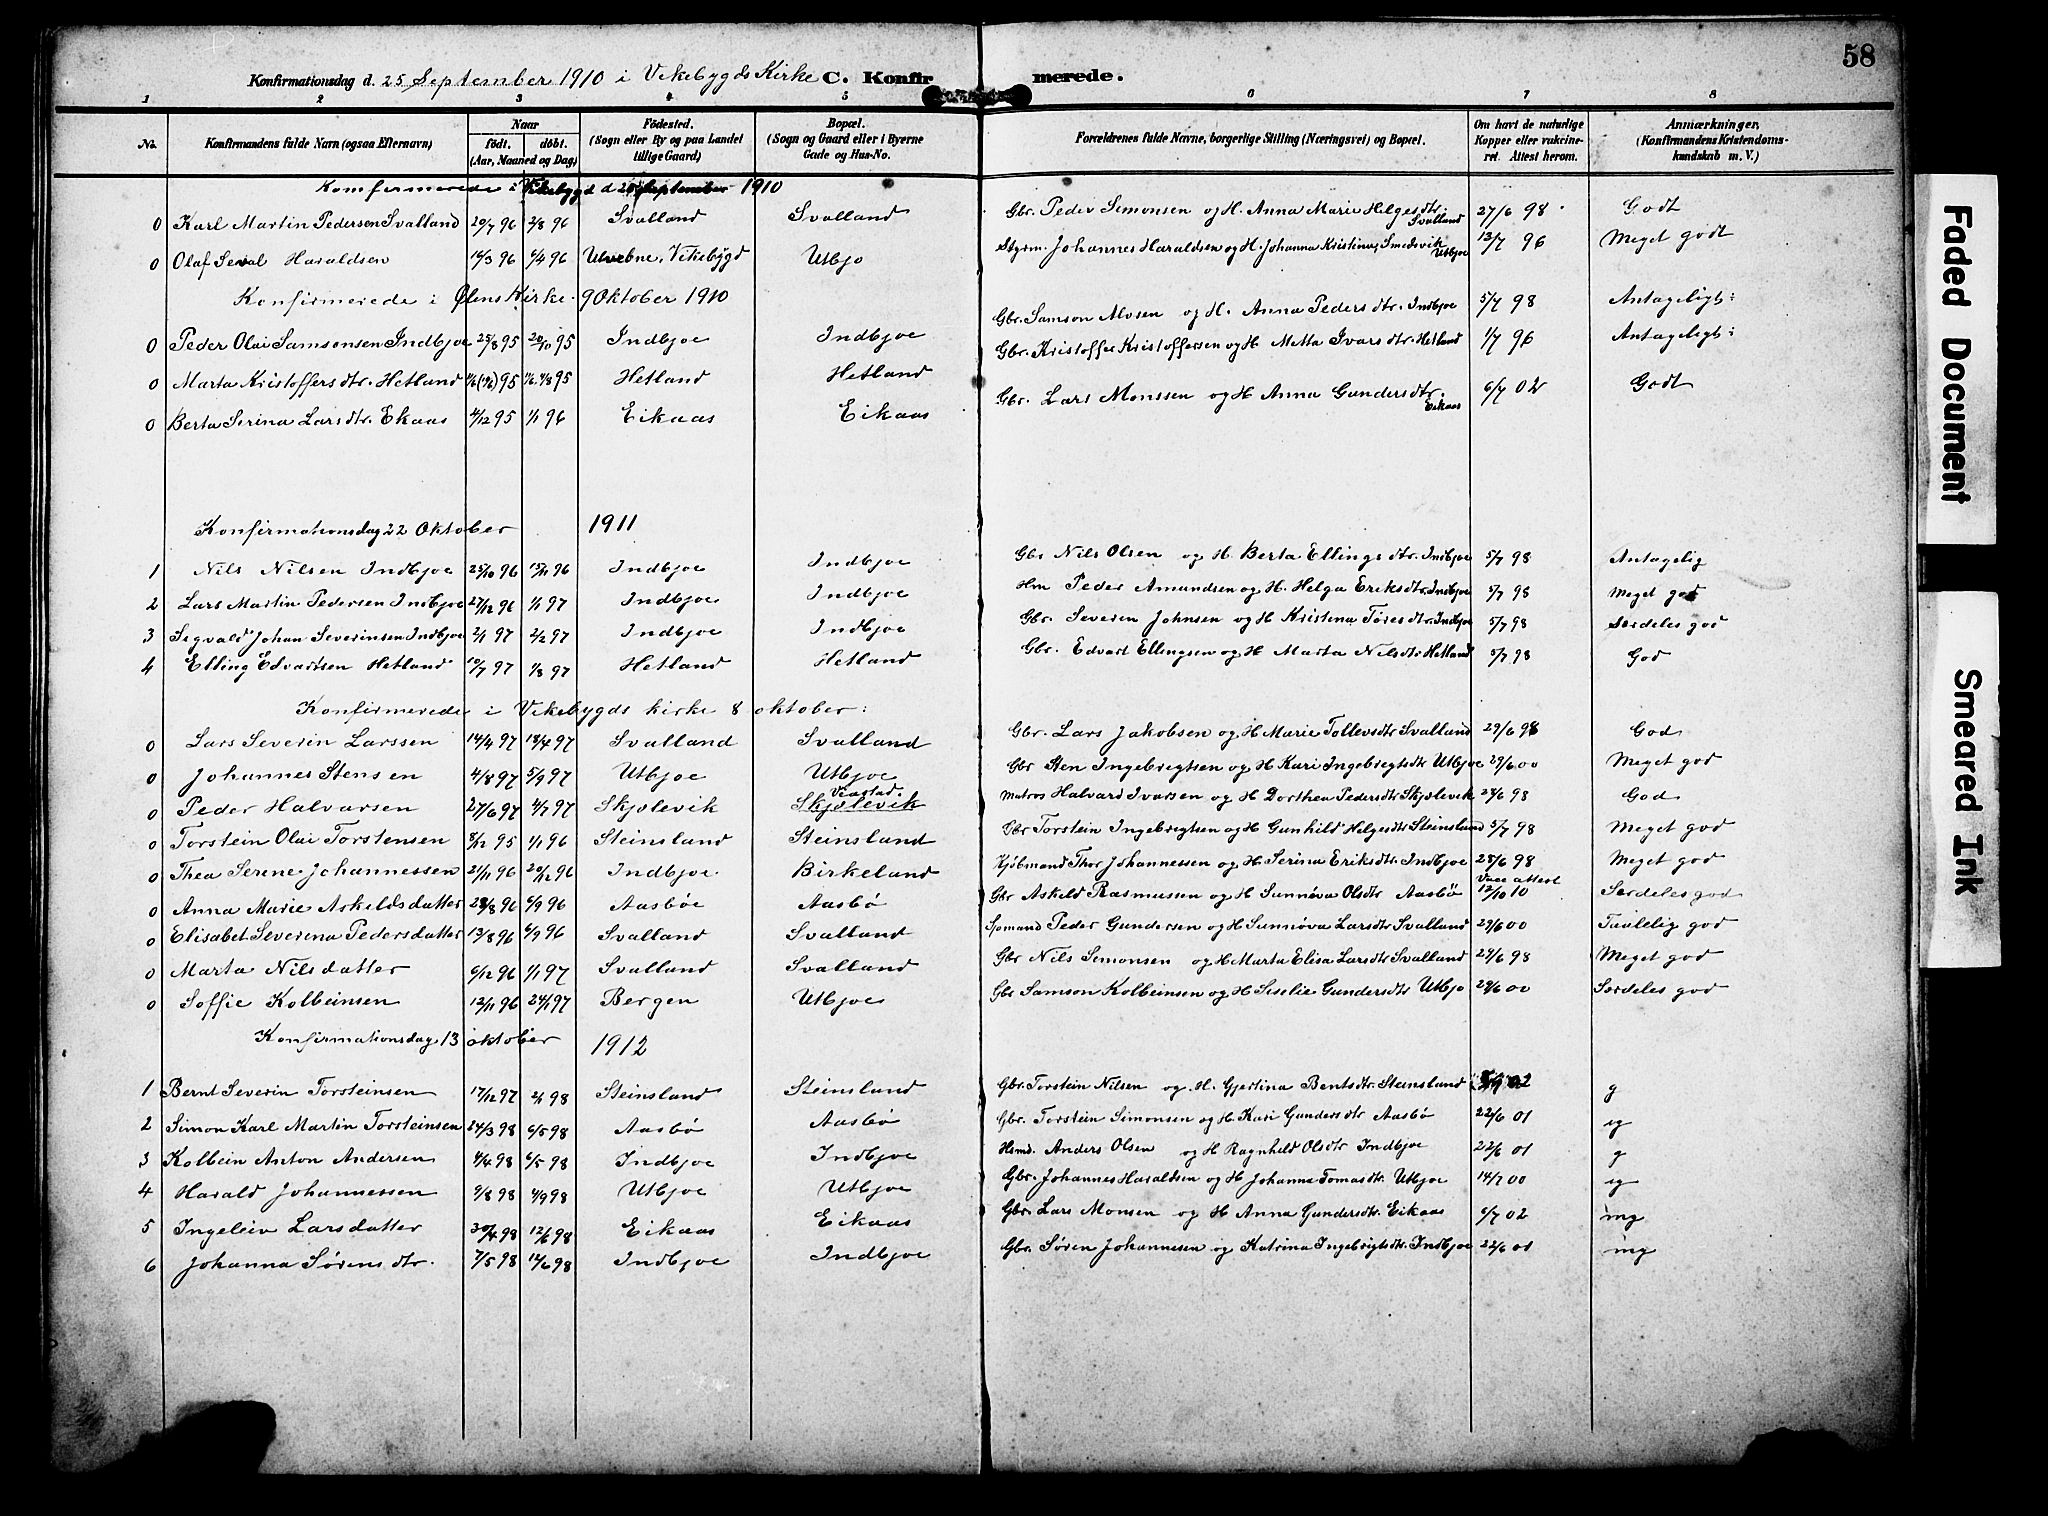 58
Konfirmationsdag d. 25 September 1910 i Vikebygds Kirke C. Konfirmerede.
1 2 3 4 5 6 7 8
No. Konfirmandens fulde Navn (ogsaa Efternavn) Naar født. døbt. (Aar, Maaned og Dag) Fødested. (Sogn eller By og paa Landet tillige Gaard) Bopæl. (Sogn og Gaard eller i Byerne Gade og Hus-No. Forældrenes fulde Navne, borgerlige Stilling (Næringsvei) og Bopæl. Om havt de naturlige Kopper eller vakcineret. Attest herom. Anmærkninger, (Konfirmandens Kristendomskundskab m. V.)
Konfirmerede i Vikebygd d 25 September 1910
0 Karl Martin Pedersen Svalland 20/7 96 2/8 96 Svalland Svalland Gbr. Peder Simonsen og H. Anna Marie Helgesdtr. Svalland 27/6 98 Godt
0 Olaf Haraldsen 96 96 Vikebygd Utbjo Styrm. Johannes Haraldsen og H. Johanna Kristina Smedsvik Utbjoe 13/7 96 Meget godt
Konfirmerede i Ølens Kirke 9 Oktober 1910
0 Peder Olai Samsonsen Indbjoe 25/8 95 20/10 95 Indbjoe Indbjoe Gbr. Samson og H. Anna Pedersdtr. Indbjoe 5/7 98 Antageligt:
0 Marta Kristoffersdtr. Hetland 95 95 Hetland Hetland Gbr. Kristoffer Kristoffersen og H Metta Ivarsdtr. Hetland 1/7 96 Antageligt:
0 Berta Serina Larsdtr. Ekaas 4/12 95 1/1 96 Eikaas Eikaas Gbr. Lars Monssen og H Anna Gundersdtr. Eikaas 6/7 02 Godt
Konfirmationsdag 22 Oktober 1911
1 Nils Nilsen Indbjoe 25/10 96 15/11 96 Indbjoe Indbjoe Gbr Nils Olsen og H. Berta Ellingsdtr. Indbjoe 5/7 98 Antagelig
2 Lars Martin Pedersen Indbjoe 27/12 96 1/1 97 Indbjoe Indbjoe Hm Peder Amundsen og H. Helga Eriksdtr. Indbjoe 5/7 98 Meget god
3 Sigvald Johan Severinsen Indbjoe 2/1 97 2/2 97 Indbjoe Indbjoe Gbr. Severin Johnsen og H Kristina Toresdtr. Indbjoe 5/7 98 Særdeles god
4 Elling Edvartsen Hetland 10/7 97 1/8 97 Hetland Hetland Gbr. Edvart Ellingsen og H Marta Nilsdtr Hetland 5/7 98 God
Konfirmerede i Vikebygds kirke 8 oktober:
0 Lars Severin Larssen 14/4 97 18/4 97 Svalland Svalland Gbr. Lars Jakobsen og H Marie Tollevsdtr Svalland 29/6 98 God
0 Johannes Stensen 4/8 97 5/9 97 Utbjoe Utbjoe Gbr Sten Ingebrigtsen og H Kari Ingebrigtsdtr Utbjoe 29/6 00 Meget god
0 Peder Halvorsen 27/6 97 97 Skjolevik Skjolevik Matros Halvard Ivarsen og H Dorthea Pedersdtr Skjolevik 98 God
0 Torstein Olai Torstensen 8/12 95 1/1 96 Steinsland Steinsland Gbr Torstein Ingebrigtsen og H Gunhild Helgesdtr Steinsland 5/7 98 Meget god
0 Thea Serene Johannessen 21/11 96 20/12 96 Indbjoe Birkeland Kjøbmand Thor Johannessen og H Serina Eriksdtr Indbjoe 28/6 98 Meget god
0 Anna Marie Askeldsdatter 28/8 96 6/9 96 Aasbøe Aasbø Gbr Askeld Rasmussen og H Sunnøva Olsdtr Aasbø Vacc attest 12/10 10 Særdeles god
0 Elisabet Severina Pedersdatter 13/8 96 6/9 96 Svalland Svalland Sjømand Peder Gundersen og H Sunnøva Larsdtr Svalland 29/6 00 Taalelig god
0 Marta Nilsdatter 6/12 96 1/1 97 Svalland Svalland Gbr Nils Simonsen og H Marta Elisa Larsdtr Svalland 98 Meget god
0 Soffie Kolbeinsen 12/11 96 24/1 97 Bergen Utbjoe Gbr Samson Kolbeinsen og H Siselie Gundersdtr Utbjo 29/6 00 Særdeles god
Konfirmationsdag 13 oktober 1912
1 Bernt Severin Torsteinsen 17/12 97 2/1 98 Steinsland Steinsland Gbr. Torstein Nilsen og H. Gjertina Bentsdtr. Steinsland 02 g
2 Simon Karl Martin Torsteinsen 24/3 98 6/5 98 Aasbø Aasbø Gbr. Torstein Simonsen og H Kari Gundersdtr Aasbø 22/6 01 g
3 Kolbein Anton Andersen 4/4 98 6/5 98 Indbjoe Indbjoe Hsmd. Anders Olsen og H Ragnhild Olsdtr Indbjoe 22/6 01 g
4 Harald Johannessen 9/8 98 4/9 98 Utbjoe Utbjoe Gbr. Johannes Haraldsen og H Johanna Tomasdtr. Utbjoe 14/7 00 g
5 Ingeleiv Larsdatter 30/4 98 12/6 98 Eikaas Eikaas Gbr. Lars Monsen og H Anna Gundersdtr. Eikaas 6/7 02 mg
6 Johanna Sørensdtr. 7/5 98 12/6 98 Indbjoe Indbjoe Gbr. Søren Johannesen og Katrina Ingebrigtsdtr. Indbjoe 22/6 01 mg
Faded Document
Smeared Ink